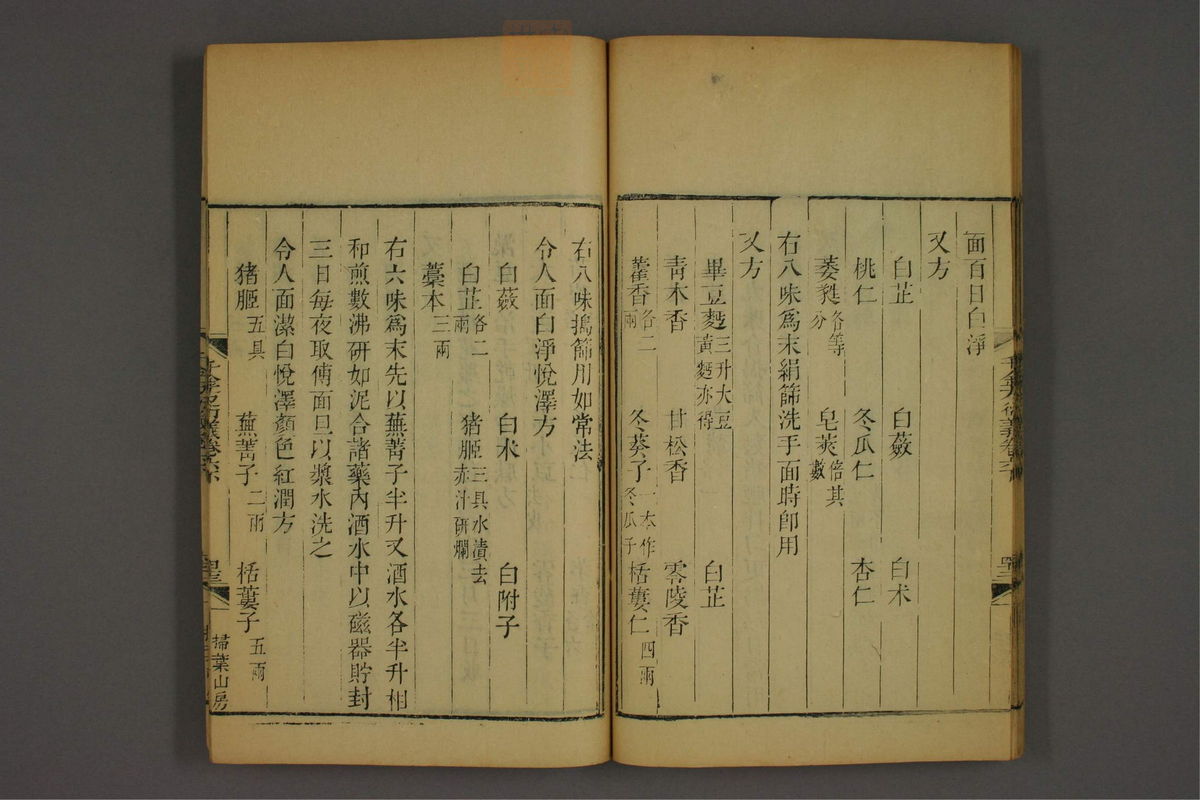 面百日白淨
又方
白芷　白蘞　白朮
桃仁　冬瓜仁　杏仁
葳蕤各等分　皂莢倍其數
右八味爲末絹篩洗手面時卽用
又方
畢豆麪三升大豆黃麪亦得　白芷
青木香　甘松香　零陵香
藿香各二兩　冬葵子一本作冬瓜子　栝蔞仁四兩
右八味搗篩用如常法
令人面白淨悅澤方
白蘞　白朮　白附子
白芷各二兩　猪胰三具水漬去赤汁研爛
藁本三兩
右六味爲末先以蕪菁子半升又酒水各半升相
和煎數沸研如泥合諸藥內酒水中以磁器貯封
三日每夜取傅面旦以漿水洗之
令人面潔白悅澤顏色紅潤方
猪胰五具　蕪菁子二兩　栝蔞子五兩
千金方衍義卷六
掃葉山房